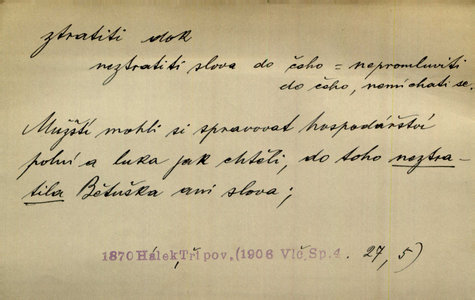 ztratiti dok
neztratiti slova do čeho = nepromluviti
do čeho, nemíchati se.
Mužští mohli si spravovat hospodářství
polní a luka jak chtěli, do toho neztra-
tila Bětuška ani slova;
1870 Hálek Tři pov. (1906 Vlč. Sp. 4. 27, 5)